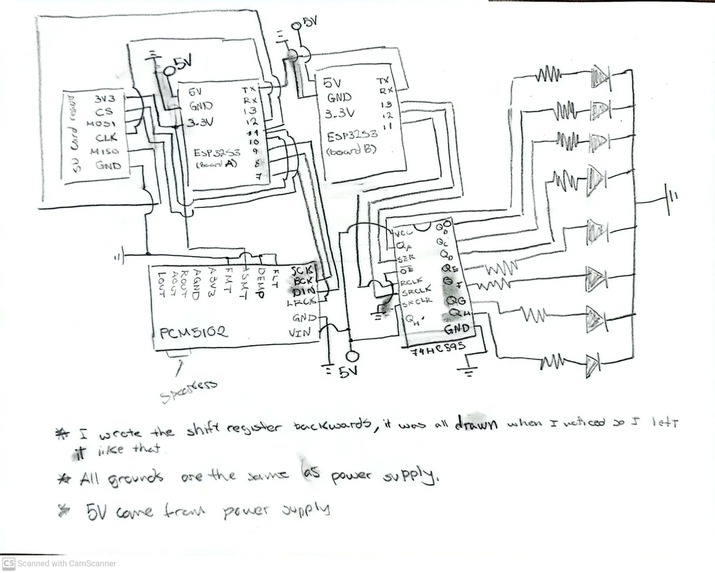 5V
5V
SD Card reader
3V3
CS
MOSI
CLK
MISO
GND
5V
GND
3-3V
ESP32S3
(board A)
TX
RX
13
12
11
10
9
8
7
5V
GND
3-3V
ESP32S3
(board B)
TX
RX
13
12
11
LOUT
AOUT
ROUT
AGND
A3V3
FMT
XSMT
DEMP
FLT
SCK
BCK
DIN
LRCK
GND
VIN
PCM5102
speakers
5V
VCC
QA
SER
OE
RCLK
SRCLK
SRCLR
QH'
QB
QC
QD
QE
QF
QG
QH
GND
74HC595
* I wrote the shift register backwards, it was all drawn when I noticed so I left
it like that.
* All grounds are the same as power supply.
* 5V come from power supply
CS Scanned with CamScanner